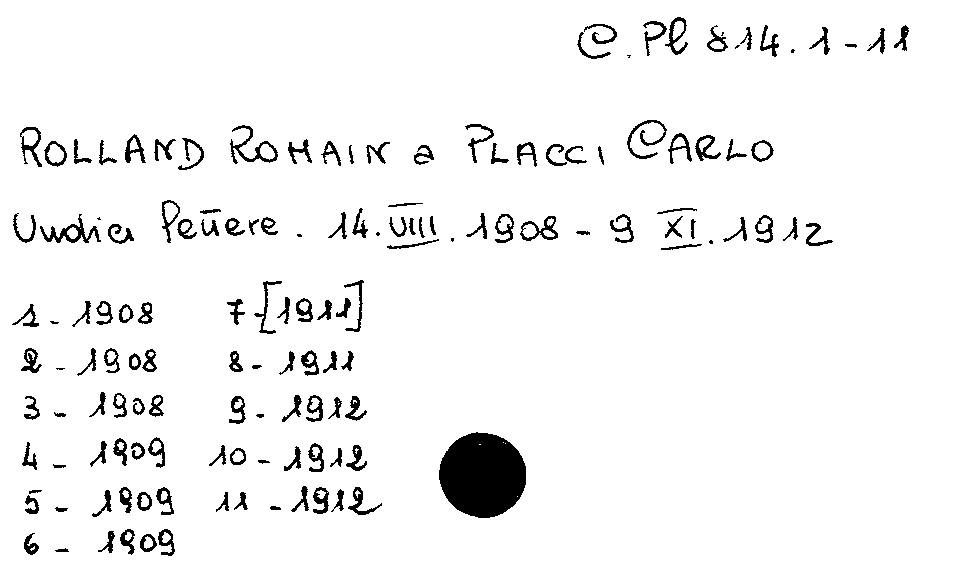 C. Pl 814. 1-11
ROLLAND ROMAIN a PLACCI CARLO
Undici lettere. 14. VIII. 1908 - 9 XI. 1912
1 - 1908 7 - [1911]
2 - 1908 8 - 1911
3 - 1908 9 - 1912
4 - 1909 10 - 1912
5 - 1909 11 - 1912
6 - 1909